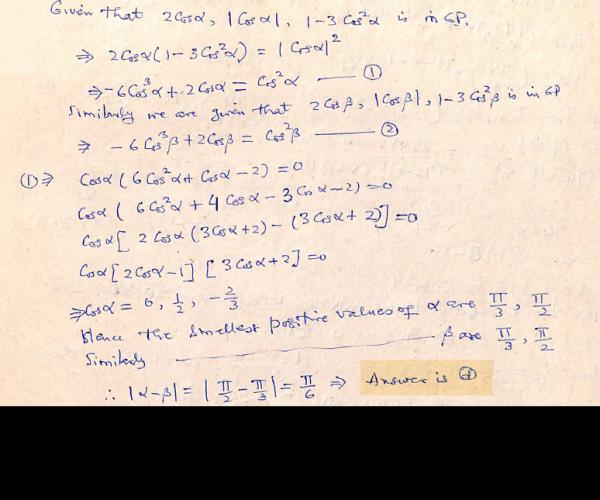 Given that 2Cosα, |Cosα|, 1-3Cos²α is in GP.
⇒ 2Cosα(1-3Cos²α) = |Cosα|²
⇒ -6Cos³α + 2Cosα = Cos²α —— ①
Similarly we are given that 2Cosβ, |Cosβ|, 1-3Cos²β is in GP
⇒ -6Cos³β + 2Cosβ = Cos²β —— ②
①⇒ Cosα(6Cos²α + Cosα - 2) = 0
Cosα(6Cos²α + 4Cosα - 3Cosα - 2) = 0
Cosα[2Cosα(3Cosα+2) - (3Cosα+2)] = 0
Cosα[2Cosα-1][3Cosα+2] = 0
⇒ Cosα = 0, 1/2, -2/3
Hence the smallest positive values of α are π/3, π/2
Similarly —— β are π/3, π/2
∴ |α-β| = |π/2 - π/3| = π/6 ⇒ Answer is ⓓ